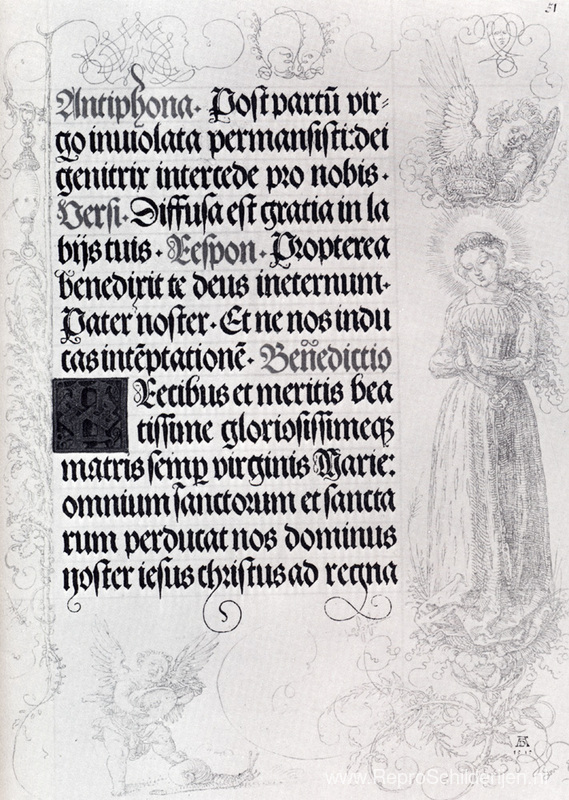 51
Antiphona. Post partū vir⸗
go inuiolata permansisti: dei
genitrix intercede pro nobis.
Versi. Diffusa est gratia in la
bijs tuis. Respon. Propterea
benedixit te deus ineternum.
Pater noster. Et ne nos indu
cas in tēptationē. Beñedictio
PRecibus et meritis bea
tissime gloriosissimeqꝫ
matris semꝑ virginis Marie:
omnium sanctorum et sancta
rum perducat nos dominus
noster iesus christus ad regna
AD
1515
www.ReproSchilderijen.nl